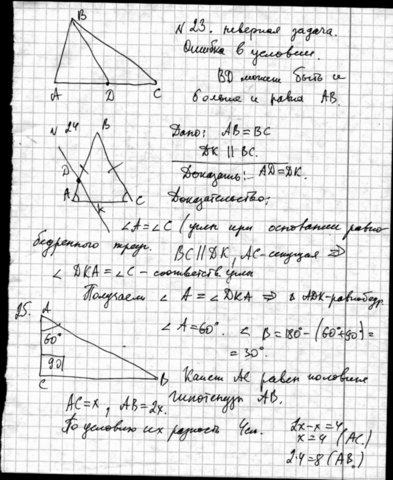 N 23. неверная задача.
Ошибка в условии.
BD может быть и
больше и равна AB.
B
A D C
N 24
B
D
A C
K
Дано: AB = BC
DK || BC.
Доказать: AD = DK.
Доказательство:
∠A = ∠C (углы при основании равно-
бедренного треуг.
BC || DK, AC - секущая ⇒
∠ DKA = ∠C - соответств. углы
Получаем ∠ A = ∠ DKA ⇒ ADK - равнобедр.
25.
A
60°
90
C B
∠ A = 60°. ∠ B = 180° - (60° + 90°) =
= 30°.
Катет AC равен половине
гипотенузы AB.
AC = x, AB = 2x.
По условию их разность 4см.
2x - x = 4
x = 4 (AC.)
2·4 = 8 (AB.)